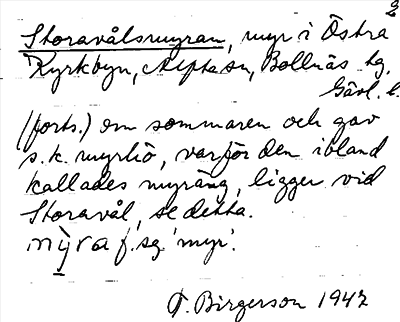 2
Storavålsmyran, myr i Östra
Kyrkbyn, Alfta sn, Bollnäs tg,
Gävl. l.
(forts.) om sommaren och gav
s.k. myrhö, varför den ibland
kallades myräng, ligger vid
Storavål, se detta.
f. sg. 'myr'.
T. Birgerson 1947